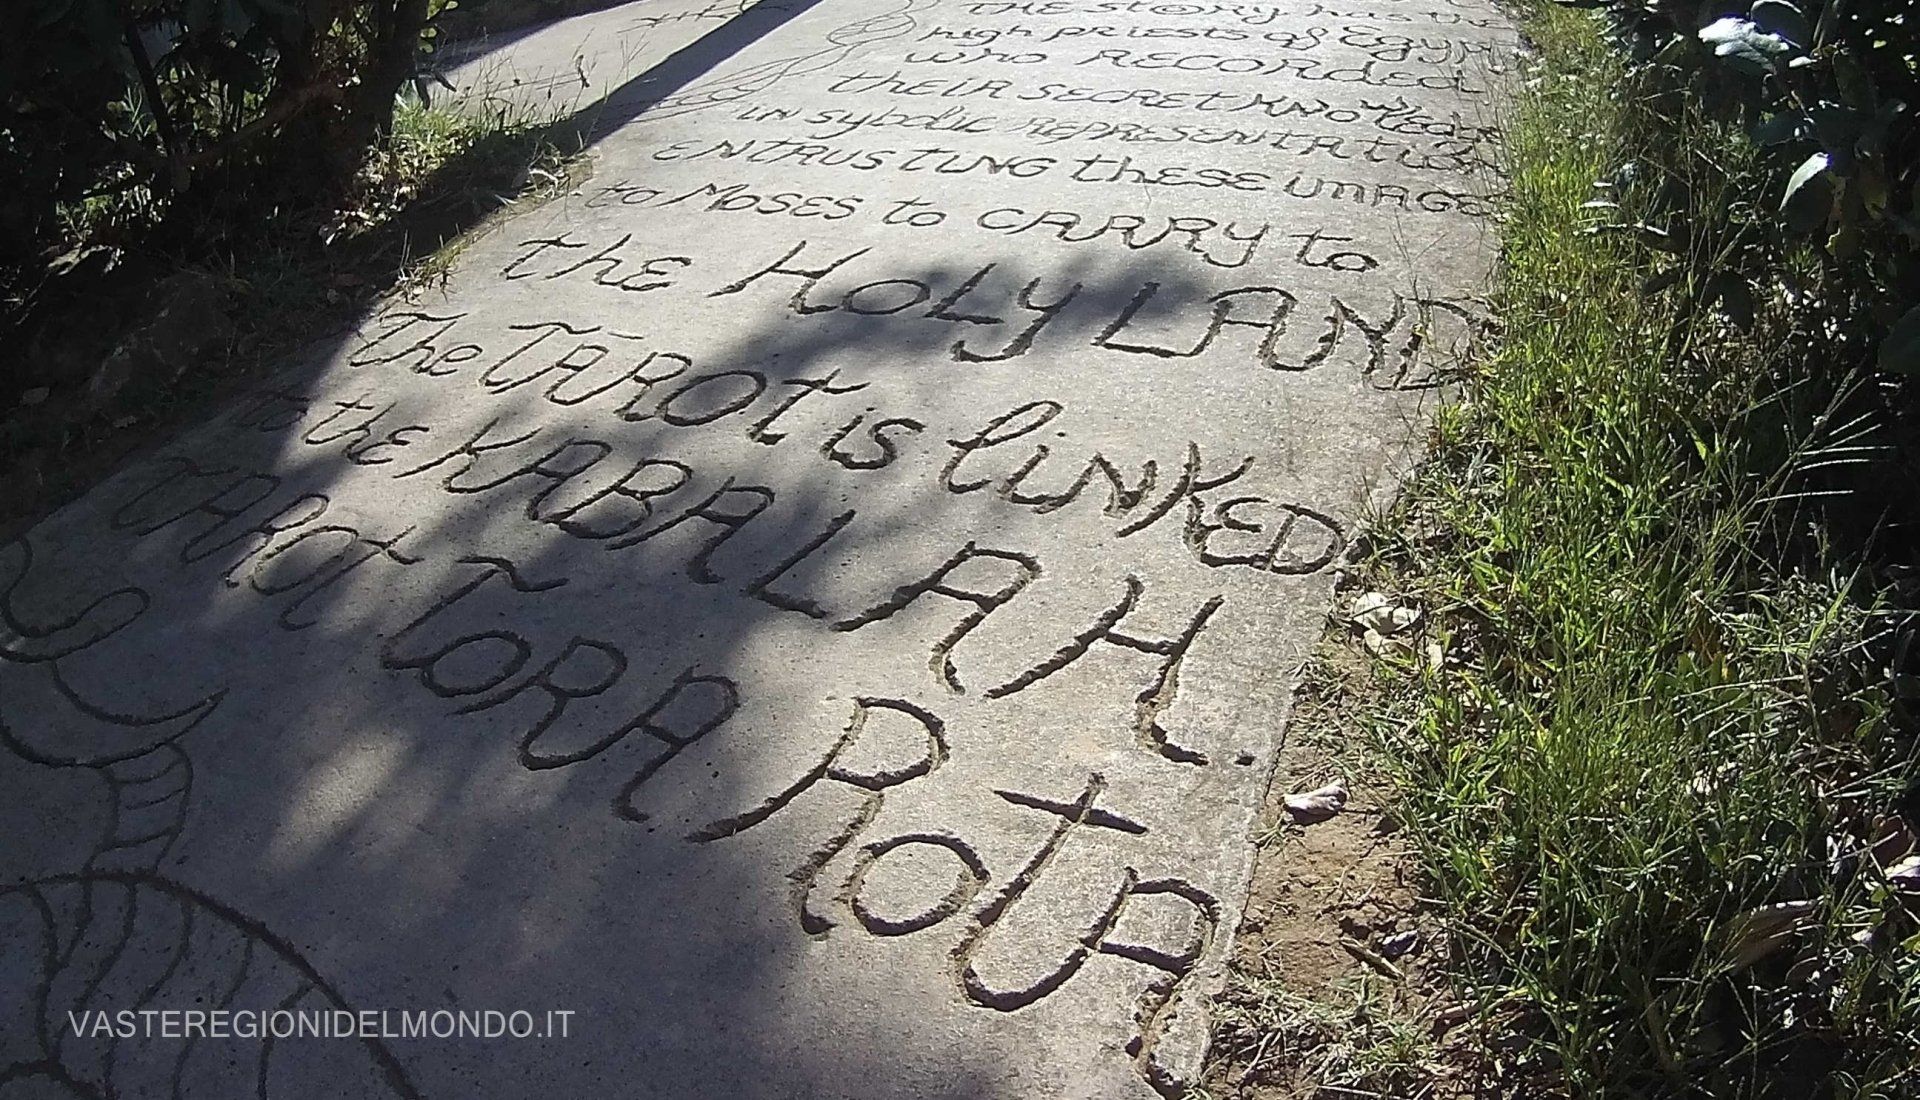 THE STORY has the
high PRIESTS of Egypt
who RECORDED
their SECRET KNOWledge
in sybolic REPRESENTATION
ENTRUSTING thESE iMAGES
to MOSES to CARRY to
the HOLY LAND
The TAROT is linKED
to the KABALAH.
TAROt TORA RotA
VASTEREGIONIDELMONDO.IT